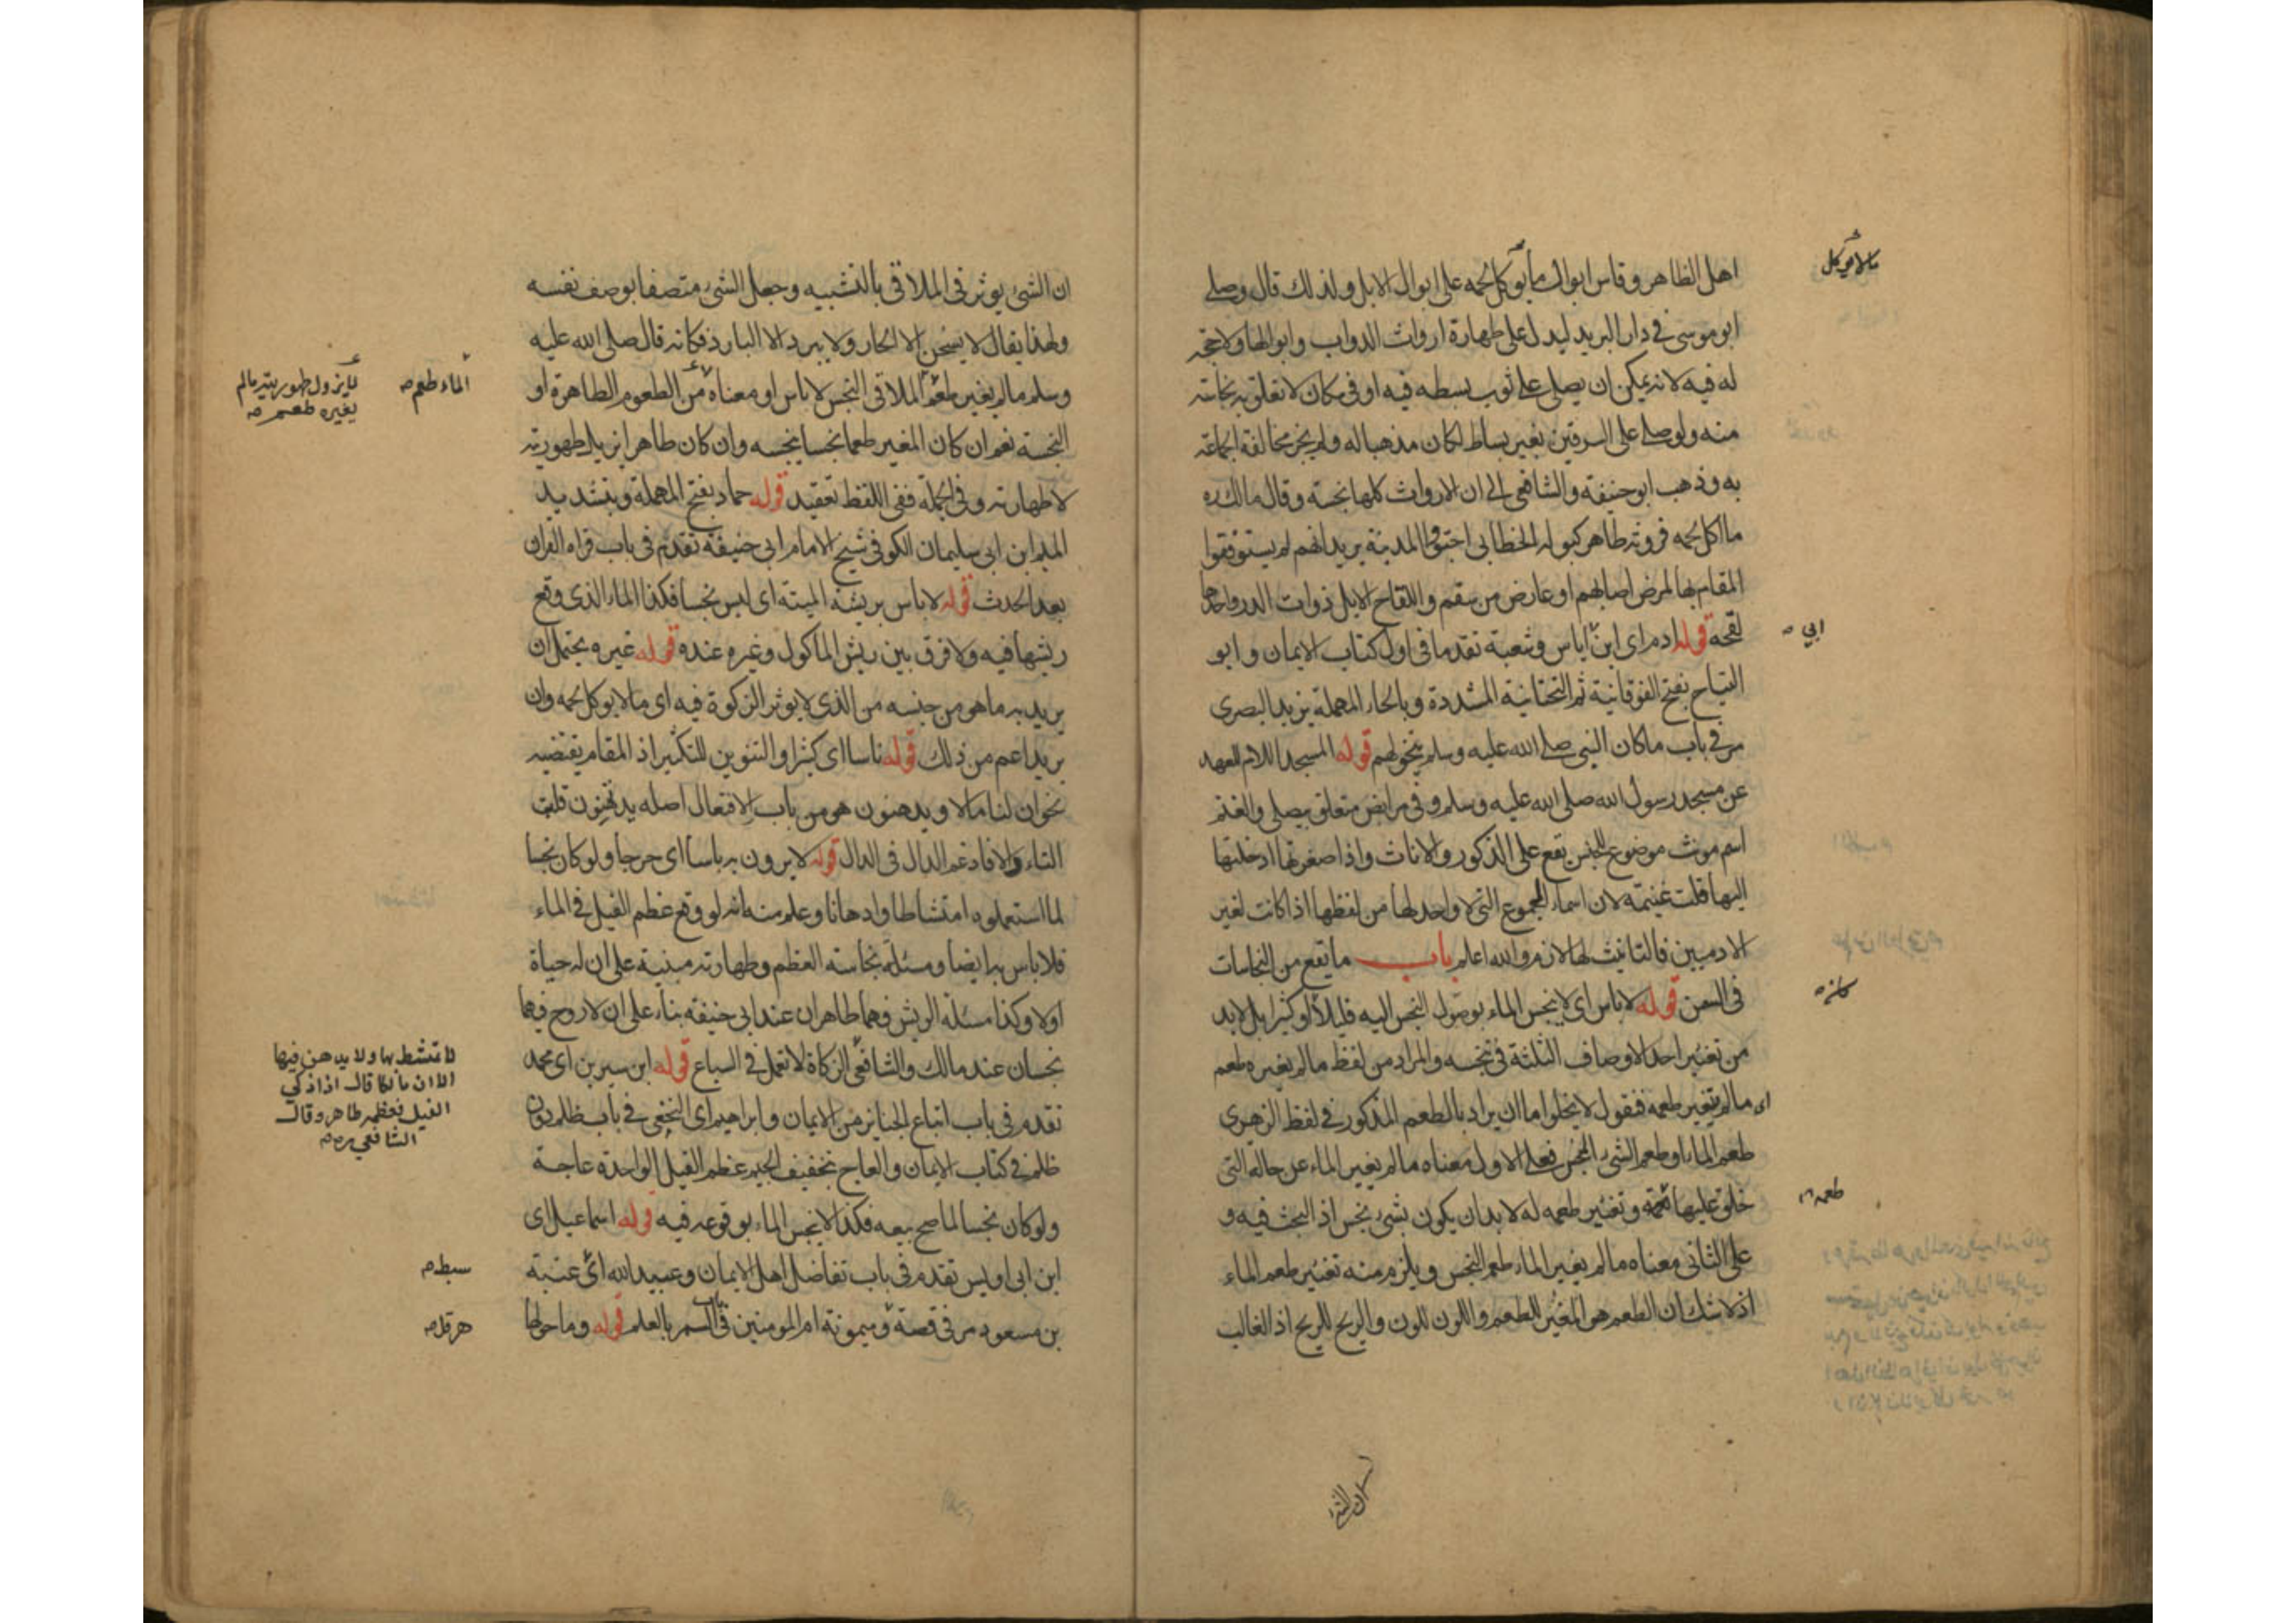 اهل الظاهر وقاس ابوال ما يوكل لحمه على ابوال الابل ولذلك قال وصلى
مالا يوكل
ابو موسى في دار البريد ليدل على طهارة ارواث الدواب وابوالها ولا حجة
له فيه لانه يمكن ان يصلي على ثوب بسطه فيه او في مكان لا تعلق به نجاسته
منه ولو صلى على السرقين بغير بساط لكان مذهبا له ولم يجز مخالفة الجماعة
به وذهب ابو حنيفة والشافعي الى ان الارواث كلها نجسة وقال مالك ره
ما اكل لحمه فروثه طاهر كبوله الخطابي اجتووا المدينة يريد انهم لم يستوفقوا
المقام بها لمرض اصابهم او عارض من سقم واللقاح الابل ذوات الدر واحدها
لقحة قوله ادم اى ابن اياس وشعبة تقدما فى اول كتاب الايمان وابو
ابي
التياح بفتح الفوقانية ثم التحتانية المشددة وبالحاء المهملة يزيد البصرى
مر في باب ماكان النبى صلى الله عليه وسلم يتخولهم قوله المسجد اللام للعهد
عن مسجد رسول الله صلى الله عليه وسلم وفى مرابض متعلق بيصلي والغنم
اسم مونث موضوع للجنس تقع على الذكور والاناث واذا صغرتها ادخلتها
الهاء قلت غنيمة لان اسماء الجموع التى لا واحد لها من لفظها اذا كانت لغير
الادميين فالتانيث لها لازم والله اعلم باب ما تقع من النجاسات
فى السمن قوله لا باس اى لا ينجس الماء بوصول النجس اليه قليلا او كثيرا بل لا بد
كانه
من تغير احد الاوصاف الثلثة فى تنجسه والمراد من لفظ مالم يغيره طعم
اى مالم يتغير طعمه فنقول لا يخلوا ما ان يراد بالطعم المذكور فى لفظ الزهرى
طعم الماء او طعم الشى النجس فعلى الاول معناه مالم يغير الماء عن حاله التى
خلق عليها وتغير طعمه له لا بدان يكون بشى نجس اذ البحث فيه و
طعمه
على الثانى معناه مالم يغير الماء طعم النجس ويلزم منه تغير طعم الماء
اذ لا شك ان الطعم هو المغير للطعم واللون للون والريح للريح اذ الغالب
ان الشى
ان الشى يوثر فى الملاقى بالتشبيه وجعل الشى متصفا بوصف نفسه
ولهذا يقال لا يسخن الا الحار ولا يبرد الا البارد فكانه قال صلى الله عليه
وسلم مالم يغير طعم الملاقى النجس لا باس او معناه من الطعوم الطاهرة او
الماء طعم
لا يزول طهوريته مالم
يغيره طعم
النجسة نعم ان كان المغير طعما نجسا ينجسه وان كان طاهرا يزيل طهوريته
لا طهارته وفى الجملة ففى اللفظ تعقيد قوله حماد بفتح المهملة وبتشديد
الميم ابن ابى سليمان الكوفى شيخ الامام ابى حنيفة تقدم فى باب قراة القران
بعد الحدث قوله لا باس بريشة الميتة اى ليس نجسا فكذا الماء الذى وقع
ريشها فيه ولا فرق بين ريش الماكول وغيره عنده قوله غيره يحتمل ان
يريد به ما هو من جنسه من الذى لا يوثر الزكوة فيه اى مالا يوكل لحمه وان
يريد اعم من ذلك قوله ناسا اى كثيرا والتنوين للتكثير اذ المقام يقتضيه
نحو ان لنا مالا ويدهنون هو من باب الافتعال اصله يدتهنون قلبت
التاء دالا فادغم الدال فى الدال قوله لا يرون به باسا اى حرجا ولو كان نجسا
لما استعملوه امتشاطا وادهانا وعلم منه انه لو وقع عظم الفيل فى الماء
فلا باس به ايضا ومسئلة نجاسة العظم وطهارته مبنية على ان له حياة
اولا وكذا مسئلة الريش فهما طاهران عند ابى حنيفة بناء على ان لا روح فيهما
نجسان عند مالك والشافعي الزكاة لا تعمل فى السباع قوله ابن سيرين اى محمد
لا تمتشط بها ولا يدهن فيها
الا ان مالكا قال اذا ذكي
الفيل فعظمه طاهر وقال
الشافعي ره
تقدم فى باب اتباع الجنايز من الايمان وابراهيم اى النخعى فى باب ظلم دون
ظلم فى كتاب الايمان والعاج بتخفيف الجيم عظم الفيل الواحدة عاجة
ولو كان نجسا لما صح بيعه فكذا لا ينجس الماء بوقوعه فيه قوله اسماعيل اى
ابن ابى اويس تقدم فى باب تفاضل اهل الايمان وعبيد الله اى عتبة
سبط
بن مسعود مر فى قصة وميمونة ام المومنين فى باب السمر بالعلم قوله وما حولها
هرقل